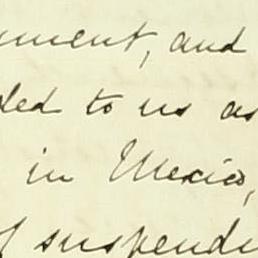 ument, and
ded to us as
in Mexico,
of suspendi